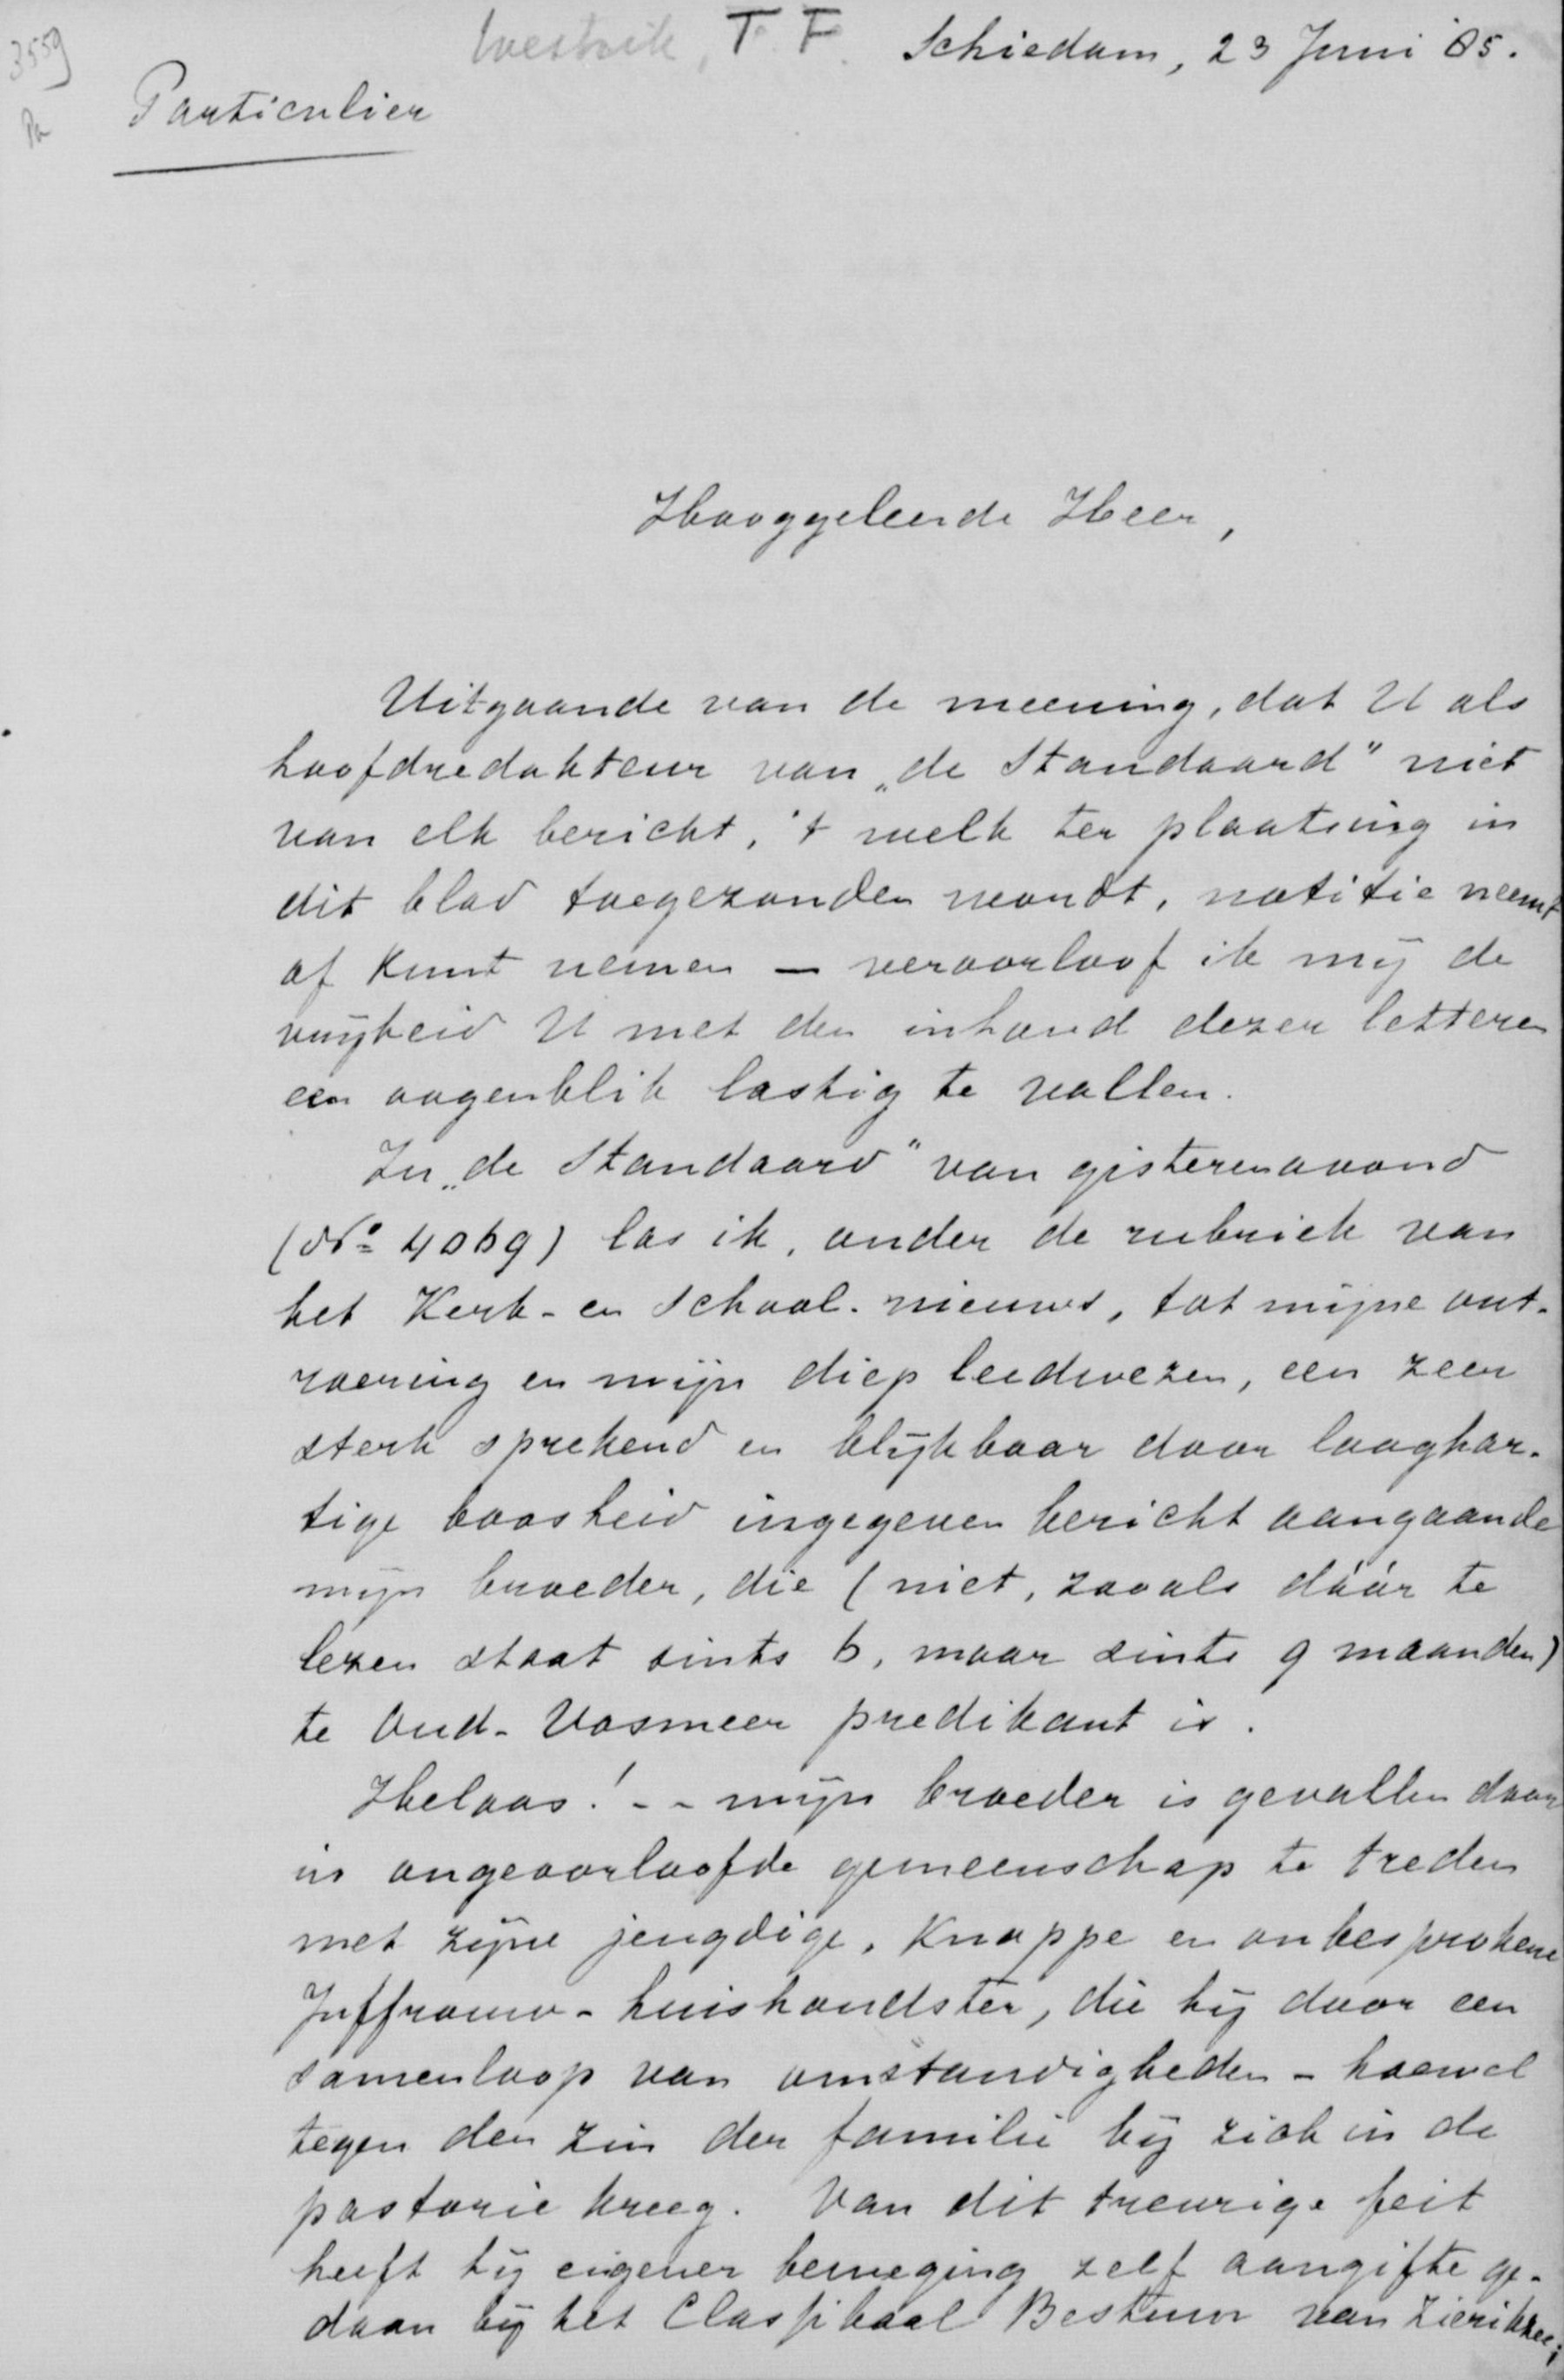 3559
Pa
Westrik, T. F. Schiedam, 23 Juni 85.
Particulier
Hooggeleerde Heer,
Uitgaande van de meening, dat U als
hoofdredakteur van „de Standaard" niet
van elk bericht, 't welk ter plaatsing in
dit blad toegezonden wordt, notitie neemt
of kunt nemen — veroorloof ik mij de
vrijheid U met den inhoud dezer letteren
een oogenblik lastig te vallen.
In „de Standaard" van gisterenavond
(No 4069) las ik, onder de rubriek van
het Kerk- en School-nieuws, tot mijne ont-
roering en mijn diep leedwezen, een zeer
sterk sprekend en blijkbaar door laaghar-
tige boosheid ingegeven bericht aangaande
mijn broeder, die (niet, zooals dáár te
lezen staat sints 6, maar sints 9 maanden)
te Oud-Vosmeer predikant is.
Helaas! -- mijn broeder is gevallen door
in ongeoorloofde gemeenschap te treden
met zijne jeugdige, knappe en onbesprokene
Juffrouw-huishoudster, die hij door een
samenloop van omstandigheden - hoewel
tegen den zin der familie bij zich in de
pastorie kreeg. Van dit treurige feit
heeft hij eigener beweging zelf aangifte ge-
daan bij het Classikaal Bestuur van Zierikzee;